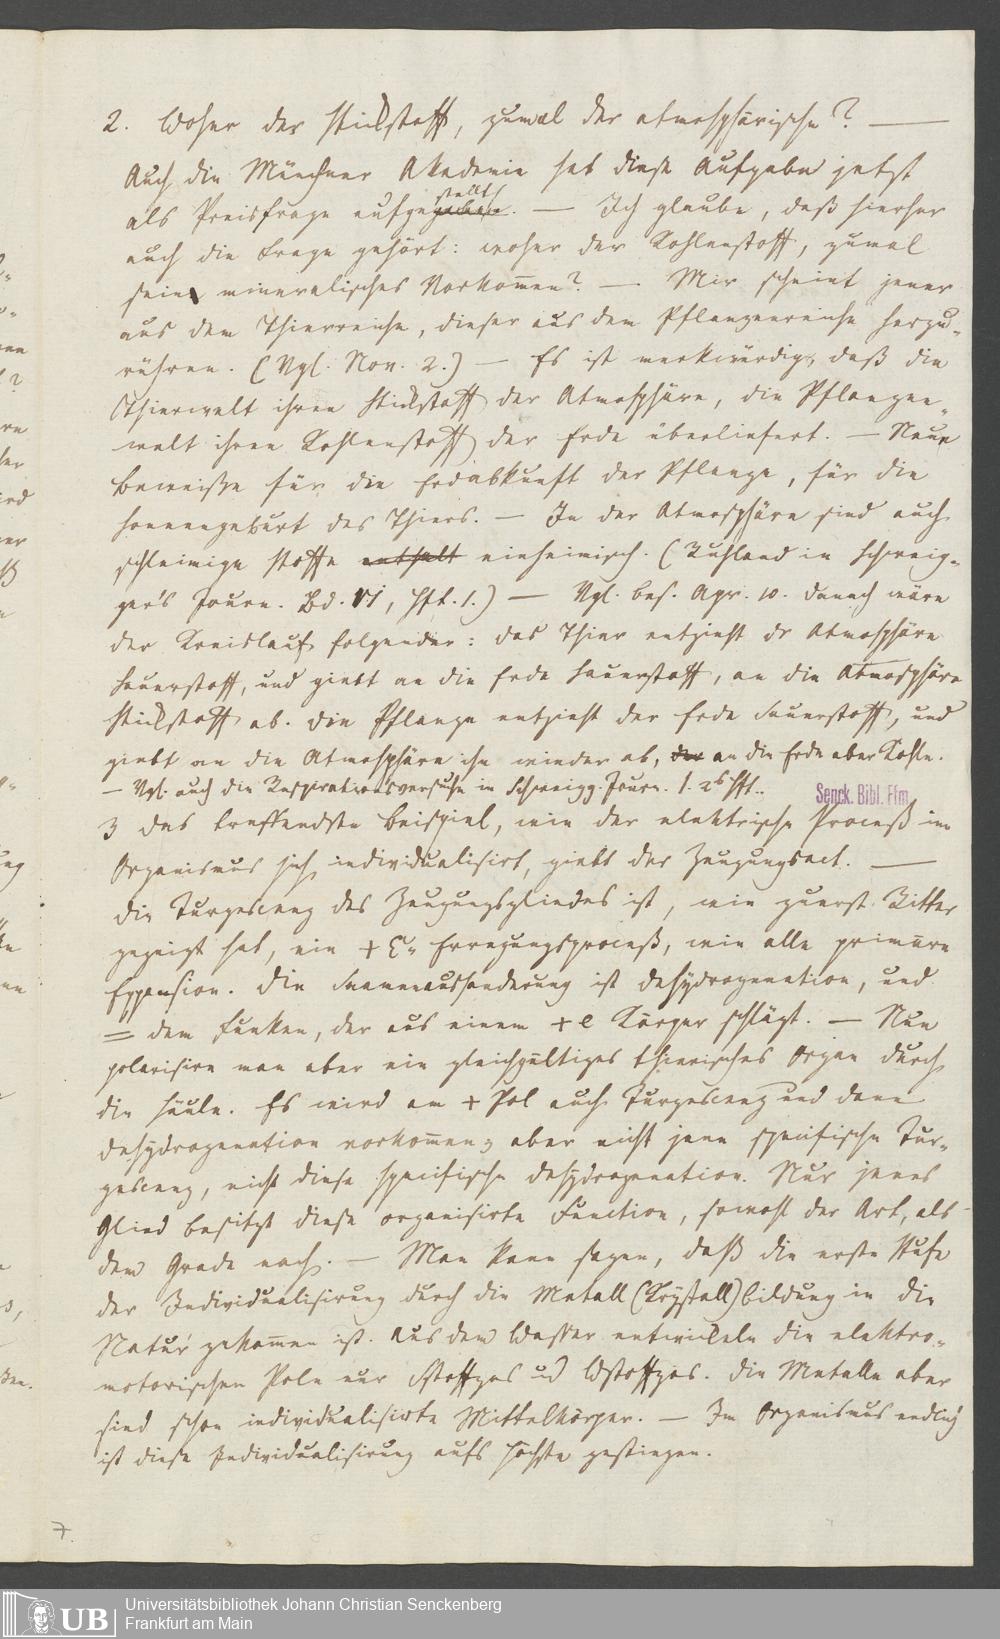 2. Woher der Stickstoff, zumal der atmosphärische? —
Auch die Münchner Akademie hat diese Aufgabe jetzt
als Preisfrage aufgestellt. — Ich glaube, daß hierher
auch die Frage gehört: woher der Kohlenstoff, zumal
sein mineralisches Vorkom̄en? — Mir scheint jener
aus dem Thierreiche, dieser aus dem Pflanzenreiche herzu-
rühren. (Vgl. Nov. 2.) — Es ist merkwürdig, daß die
Thierwelt ihren Stickstoff der Atmosphäre, die Pflanzen-
welt ihren Kohlenstoff der Erde überliefert. — Neue
Beweise für die Erdabkunft der Pflanze, für die
Sonnengeburt des Thiers. — In der Atmosphäre sind auch
schleimige Stoffe enthalt einheimisch. (Ruhland in Schweig-
ger's Journ. Bd. VI, Hft. 1.) — Vgl. bes. Apr. 10. danach wäre
der Kreislauf folgender: das Thier entzieht dr Atmosphäre
Sauerstoff, und giebt an die Erde Sauerstoff, an die Atmosphäre
Stickstoff ab. die Pflanze entzieht der Erde Sauerstoff, und
giebt an die Atmosphäre ihn wieder ab, an die Erde aber Kohle.
— Vgl. auch die Respirationsversuche in Schweigg. Journ. 1. 2s Hft..
Senck. Bibl. Ffm
3 das treffendste Beispiel, wie der elektrische Proceß im
Organismus sich individualisirt, giebt der Zeugungsact. —
die Turgescenz des Zeugungsgliedes ist, wie zuerst Ritter
gezeigt hat, ein +E- Erregungsproceß, wie alle primäre
Expansion. die Samenaussonderung ist Dehydrogenation, und
= dem Funken, der aus einem +e Körper schlägt. — Nun
polarisire man aber ein gleichgültiges thierisches Organ durch
die Säule. Es wird am + Pol auch Turgescenz und dann
Dehydrogenation vorkom̄en; aber nicht jene specifische Tur-
gescenz, nicht diese specifische Dehydrogenation. Nur jenes
Glied besitzt diese organisirte Function, sowohl der Art, als
dem Grade nach. — Man kann sagen, daß die erste Stufe
der Individualisirung durch die Metall (Krystall) bildung in die
Natur gekom̄en ist. Aus dem Wasser entwickeln die elektro-
motorischen Pole nur Sstoffgas ud Wstoffgas. die Metalle aber
sind schon individualisirte Mittelkörper. — Im Organismus endlich
ist diese Individualisirung aufs höchste gestiegen.
7.
UB
Universitätsbibliothek Johann Christian Senckenberg
Frankfurt am Main